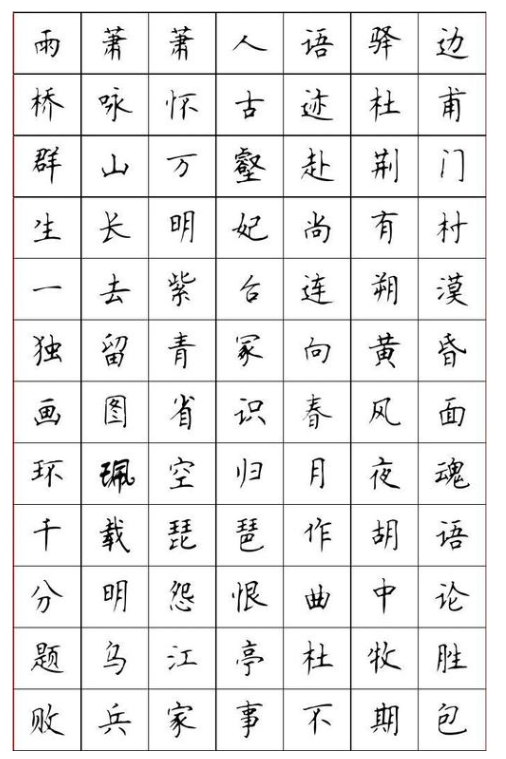 雨萧萧人语驿边
桥咏怀古迹杜甫
群山万壑赴荆门
生长明妃尚有村
一去紫台连朔漠
独留青冢向黄昏
画图省识春风面
环珮空归月夜魂
千载琵琶作胡语
分明怨恨曲中论
题乌江亭杜牧胜
败兵家事不期包